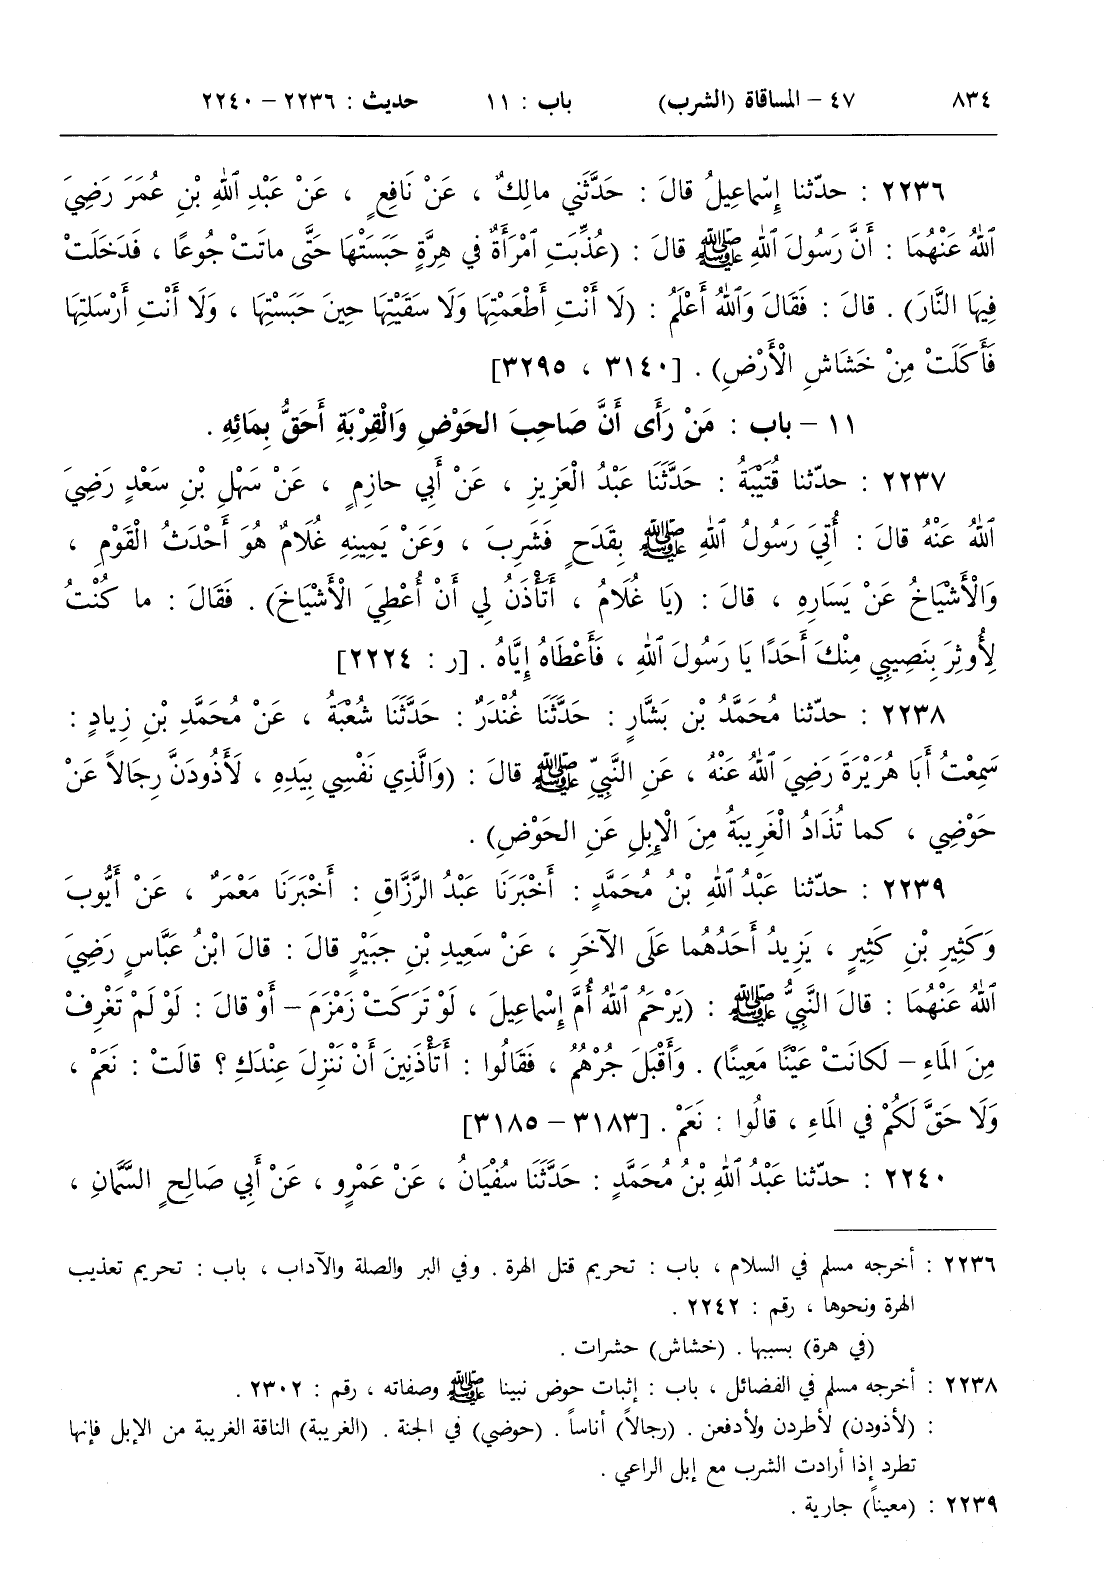 ٨٣٤ ٤٧ – المساقاة (الشرب) باب : ١١ حديث : ٢٢٣٦ – ٢٢٤٠
٢٢٣٦ : حدّثنا إِسْماعِيلُ قالَ : حَدَّثَنِي مالِكٌ ، عَنْ نَافِعٍ ، عَنْ عَبْدِ ٱللهِ بْنِ عُمَرَ رَضِيَ
ٱللهُ عَنْهُمَا : أَنَّ رَسُولَ ٱللهِ ﷺ قالَ : (عُذِّبَتِ ٱمْرَأَةٌ في هِرَّةٍ حَبَسَتْهَا حَتَّى ماتَتْ جُوعًا ، فَدَخَلَتْ
فِيهَا النَّارَ) . قالَ : فَقَالَ وَٱللهُ أَعْلَمُ : (لَا أَنْتِ أَطْعَمْتِهَا وَلَا سَقَيْتِهَا حِينَ حَبَسْتِهَا ، وَلَا أَنْتِ أَرْسَلْتِهَا
فَأَكَلَتْ مِنْ خَشَاشِ الْأَرْضِ) . [٣١٤٠ ، ٣٢٩٥]
١١ – باب : مَنْ رَأَى أَنَّ صَاحِبَ الحَوْضِ وَالْقِرْبَةِ أَحَقُّ بِمَائِهِ .
٢٢٣٧ : حدّثنا قُتَيْبَةُ : حَدَّثَنَا عَبْدُ الْعَزِيزِ ، عَنْ أَبِي حازِمٍ ، عَنْ سَهْلِ بْنِ سَعْدٍ رَضِيَ
ٱللهُ عَنْهُ قالَ : أُتِيَ رَسُولُ ٱللهِ ﷺ بِقَدَحٍ فَشَرِبَ ، وَعَنْ يَمِينِهِ غُلَامٌ هُوَ أَحْدَثُ الْقَوْمِ ،
وَالْأَشْيَاخُ عَنْ يَسَارِهِ ، قالَ : (يَا غُلَامُ ، أَتَأْذَنُ لِي أَنْ أُعْطِيَ الْأَشْيَاخَ) . فَقَالَ : ما كُنْتُ
لِأُوثِرَ بِنَصِيبِي مِنْكَ أَحَدًا يَا رَسُولَ ٱللهِ ، فَأَعْطَاهُ إِيَّاهُ . [ر : ٢٢٢٤]
٢٢٣٨ : حدّثنا مُحَمَّدُ بْنُ بَشَّارٍ : حَدَّثَنَا غُنْدَرٌ : حَدَّثَنَا شُعْبَةُ ، عَنْ مُحَمَّدِ بْنِ زِيادٍ :
سَمِعْتُ أَبَا هُرَيْرَةَ رَضِيَ ٱللهُ عَنْهُ ، عَنِ النَّبِيِّ ﷺ قالَ : (وَالَّذِي نَفْسِي بِيَدِهِ ، لَأَذُودَنَّ رِجالاً عَنْ
حَوْضِي ، كما تُذَادُ الْغَرِيبَةُ مِنَ الْإِبِلِ عَنِ الحَوْضِ) .
٢٢٣٩ : حدّثنا عَبْدُ ٱللهِ بْنُ مُحَمَّدٍ : أَخْبَرَنَا عَبْدُ الرَّزَّاقِ : أَخْبَرَنَا مَعْمَرٌ ، عَنْ أَيُّوبَ
وَكَثِيرِ بْنِ كَثِيرٍ ، يَزِيدُ أَحَدُهُما عَلَى الآخَرِ ، عَنْ سَعِيدِ بْنِ جبَيْرٍ قالَ : قالَ ابْنُ عَبَّاسٍ رَضِيَ
ٱللهُ عَنْهُمَا : قالَ النَّبِيُّ ﷺ : (يَرْحَمُ ٱللهُ أُمَّ إِسْماعِيلَ ، لَوْ تَرَكَتْ زَمْزَمَ – أَوْ قالَ : لَوْ لَمْ تَغْرِفْ
مِنَ المَاءِ – لَكانَتْ عَيْنًا مَعِينًا) . وَأَقْبَلَ جُرْهُمُ ، فَقَالُوا : أَتَأْذَنِينَ أَنْ نَنْزِلَ عِنْدَكِ ؟ قالَتْ : نَعَمْ ،
وَلَا حَقَّ لَكُمْ في المَاءِ ، قالُوا : نَعَمْ . [٣١٨٣ – ٣١٨٥]
٢٢٤٠ : حدّثنا عَبْدُ ٱللهِ بْنُ مُحَمَّدٍ : حَدَّثَنَا سُفْيَانُ ، عَنْ عَمْرٍو ، عَنْ أَبِي صَالِحٍ السَّمَّانِ ،
٢٢٣٦ : أخرجه مسلم في السلام ، باب : تحريم قتل الهرة . وفي البر والصلة والآداب ، باب : تحريم تعذيب
الهرة ونحوها ، رقم : ٢٢٤٢ .
(في هرة) بسببها . (خشاش) حشرات .
٢٢٣٨ : أخرجه مسلم في الفضائل ، باب : إثبات حوض نبينا ﷺ وصفاته ، رقم : ٢٣٠٢ .
: (لأذودن) لأطردن ولأدفعن . (رجالاً) أناساً . (حوضي) في الجنة . (الغريبة) الناقة الغريبة من الإبل فإنها
تطرد إذا أرادت الشرب مع إبل الراعي .
٢٢٣٩ : (معيناً) جارية .